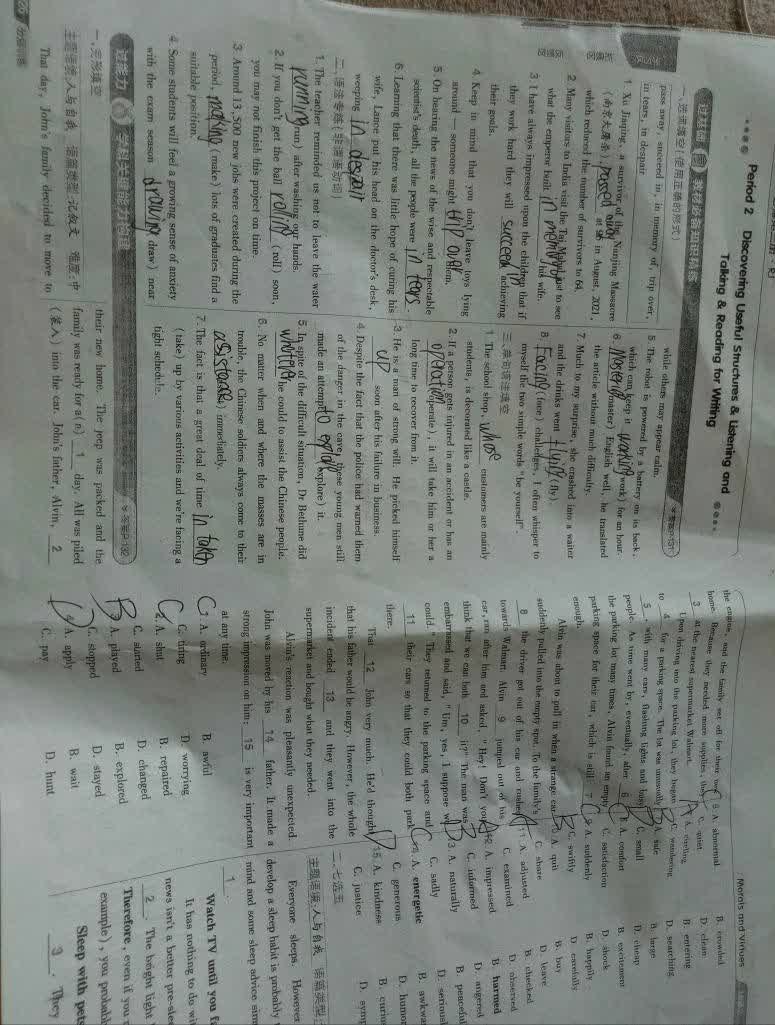 Period 2 Discovering Useful Structures & Listening and
Talking & Reading for Writing
一、选词填空(使用正确的形式)
pass away, succeed in, in memory of, trip over,
in tears, in despair
1. Xu Jiaqing, a survivor of the Nanjing Massacre
(南京大屠杀), passed away at 96 in August, 2021,
which reduced the number of survivors to 64.
2. Many visitors to India visit the Taj Mahal just to see
what the emperor built in memory of his wife.
3. I have always impressed upon the children that if
they work hard they will succeed in achieving
their goals.
4. Keep in mind that you don't leave toys lying
around — someone might trip over them.
5. On hearing the news of the wise and respectable
scientist's death, all the people were in tears.
6. Learning that there was little hope of curing his
wife, Lance put his head on the doctor's desk,
weeping in despair
二、语法专练(非谓语动词)
1. The teacher reminded us not to leave the water
running (run) after washing our hands.
2. If you don't get the ball rolling (roll) soon,
you may not finish this project on time.
3. Around 13,500 new jobs were created during the
period, making (make) lots of graduates find a
suitable position.
4. Some students will feel a growing sense of anxiety
with the exam season drawing (draw) near
while others may appear calm.
5. The robot is powered by a battery on its back,
which can keep it working (work) for an hour.
6. (master) English well, he translated
the article without much difficulty.
7. Much to my surprise, she crashed into a waiter
and the drinks went flying (fly).
8. Facing (face) challenges, I often whisper to
myself the two simple words "be yourself".
三、单句语法填空
1. The school shop, whose customers are mainly
students, is decorated like a castle.
2. If a person gets injured in an accident or has an
operation (operate), it will take him or her a
long time to recover from it.
3. He is a man of strong will. He picked himself
up soon after his failure in business.
4. Despite the fact that the police had warned them
of the danger in the cave, these young men still
made an attempt to explore (explore) it.
5. In spite of the difficult situation, Dr Bethune did
whatever he could to assist the Chinese people.
6. No matter when and where the masses are in
trouble, the Chinese soldiers always come to their
immediately.
7. The fact is that a great deal of time is taken
(take) up by various activities and we're facing a
tight schedule.
一、完形填空
主题语境:人与自我 语篇类型:记叙文 难度:中
That day, John's family decided to move to
their new home. The jeep was packed and the
family was ready for a(n) 1 day. All was piled
(装入) into the car. John's father, Alvin, 2
the engine, and the family set off for their new
home. Because they needed more supplies, they
3 at the nearest supermarket, Walmart.
Upon driving into the parking lot, they began
to 4 for a parking space. The lot was unusually
5 with many cars, flashing lights and busy
people. As time went by, eventually, after 6
the parking lot many times, Alvin found an empty
parking space for their car, which is still 7
enough.
Alvin was about to pull in when a strange car
suddenly pulled into the empty spot. To the family's
8 the driver got out of his car and rushed
towards Walmart. Alvin 9 jumped out of his
car, ran after him and asked, "Hey! Don't you
think that we can both 10 it?" The man was
embarrassed and said, "Um, yes, I suppose we
could." They returned to the parking space and
11 their cars so that they could both park
there.
That 12 John very much. He'd thought
that his father would be angry. However, the whole
incident ended 13 and they went into the
supermarket and bought what they needed.
Alvin's reaction was pleasantly unexpected.
John was moved by his 14 father. It made a
strong impression on him: 15 is very important
at any time.
1. A. ordinary B. awful
C. tiring D. worrying
2. A. shut B. repaired
C. started D. changed
3. A. played B. explored
C. stopped D. stayed
4. A. apply B. wait
C. pay D. hunt
5. A. abnormal B. crowded
C. quiet D. clean
6. A. circling B. entering
C. wandering D. searching
7. A. safe B. large
C. small D. cheap
8. A. comfort B. excitement
C. satisfaction D. shock
9. A. suddenly B. happily
C. swiftly D. carefully
10. A. quit B. buy
C. share D. leave
11. A. adjusted B. checked
C. examined D. observed
12. A. impressed B. harmed
C. informed D. angered
13. A. naturally B. peaceful
C. sadly D. serious
14. A. energetic B. awkwa
C. generous D. humor
15. A. kindness B. curio
C. justice D. symp
二、七选五
主题语境:人与自我 语篇类型:
Everyone sleeps. However
develop a sleep habit is probably
mind and some sleep advice sim
1
Watch TV until you f
It has nothing to do wi
news isn't a better pre-slee
2 . The bright light
Therefore, even if you r
example), you probabl
Sleep with pets
3 . They